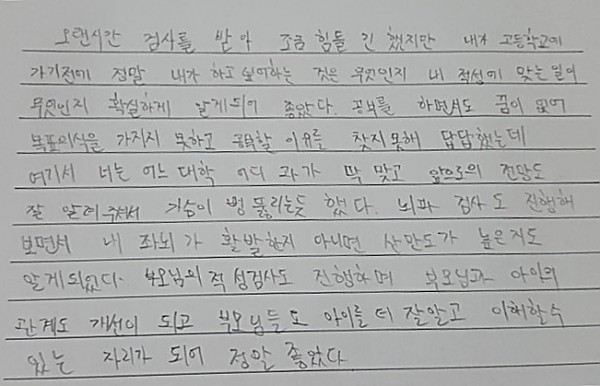 오랜시간 검사를 받아 조금 힘들 긴 했지만 내가 고등학교에
가기전에 정말 내가 하고 싶어하는 것은 무엇인지 내 적성에 맞는 일이
무엇인지 확실하게 알게되어 좋았다. 공부를 하면서도 꿈이 없어
목표의식을 가지지 못하고 공부할 이유를 찾지못해 답답했는데
여기서 너는 어느 대학 어디 과가 딱 맞고 앞으로의 전망도
잘 알려 주셔서 가슴이 뻥 뚫리는듯 했다. 뇌파 검사도 진행해
보면서 내 좌뇌가 활발한지 아니면 산만도가 높은지도
알게되었다. 부모님의 적성검사도 진행하며 부모님과 아이의
관계도 개선이 되고 부모님들도 아이를 더 잘알고 이해할수
있는 자리가 되어 정말 좋았다